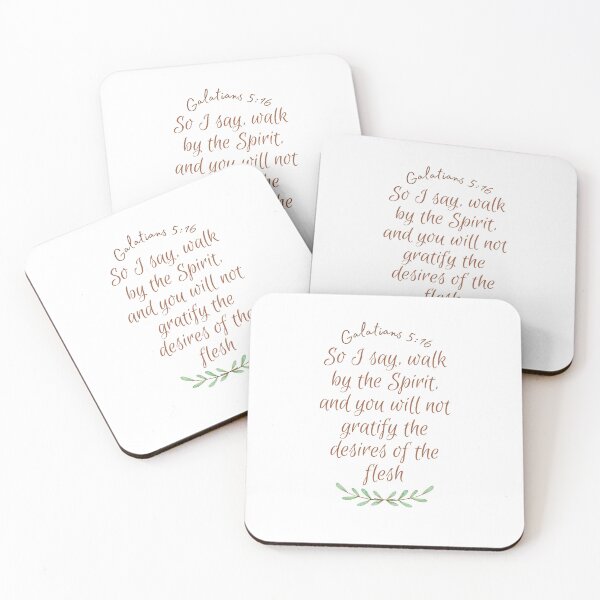 Galatians 5:16
So I say, walk
by the Spirit,
and you will not
the
the
Galatians 5:16
So I say, walk
by the Spirit,
and you will not
gratify the
desires of the
flesh
Galatians 5:16
So I say, walk
by the Spirit,
and you will not
gratify the
desires of the
flesh
Galatians 5:16
So I say, walk
by the Spirit,
and you will not
gratify the
desires of the
flesh